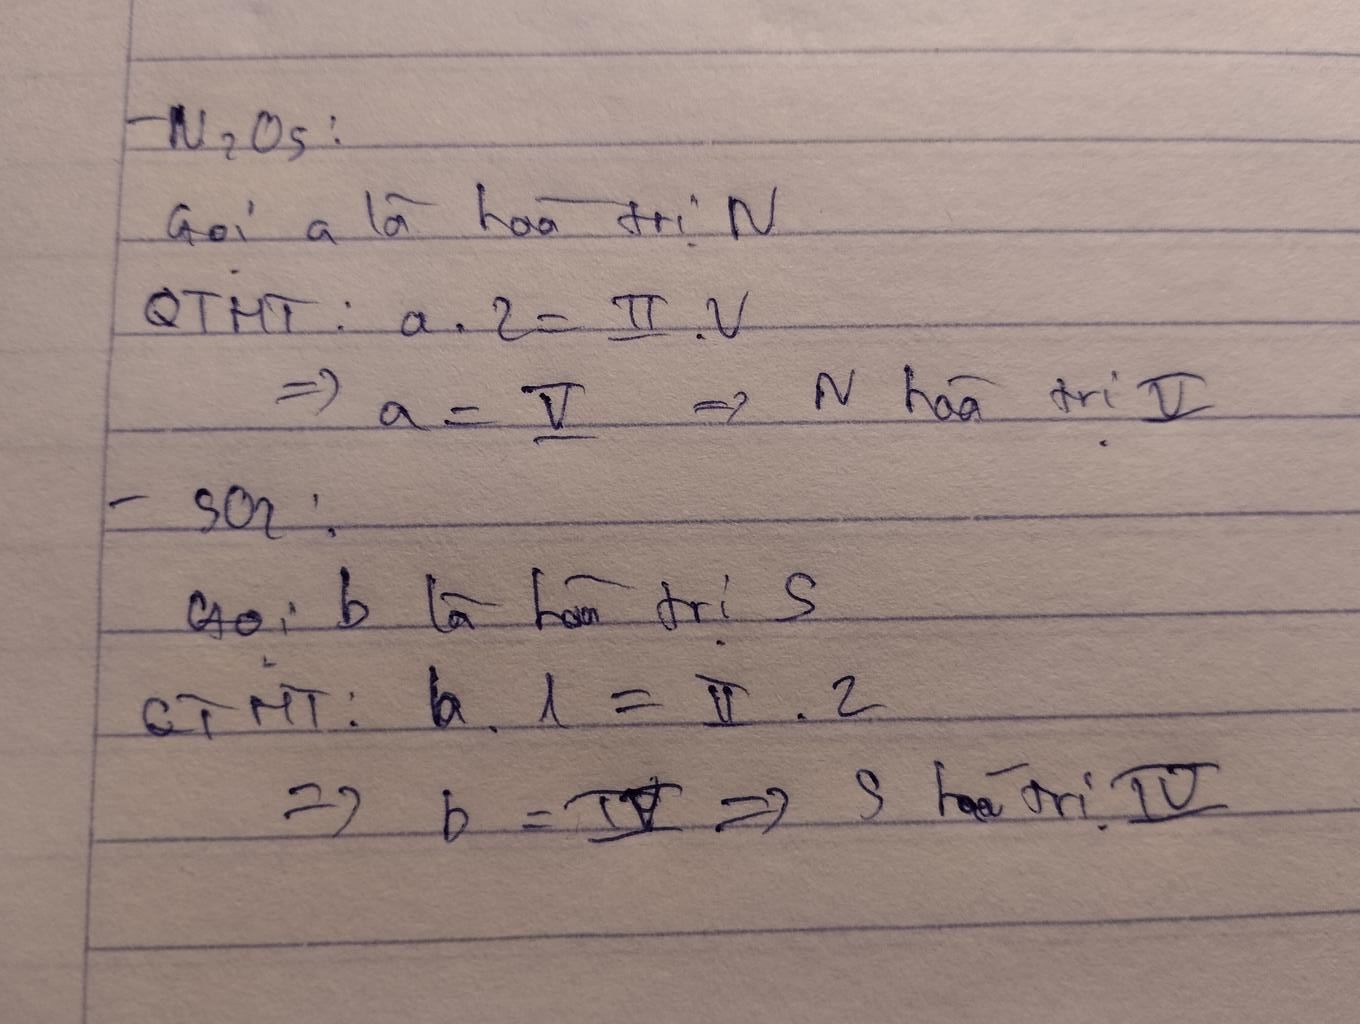 - N₂O₅:
Gọi a là hoá trị N
QTHT: a. 2 = II. V
=> a = V => N hoá trị V
- SO₂:
Gọi b là hoá trị S
QTHT: b. 1 = II. 2
=> b = IV => S hoá trị IV